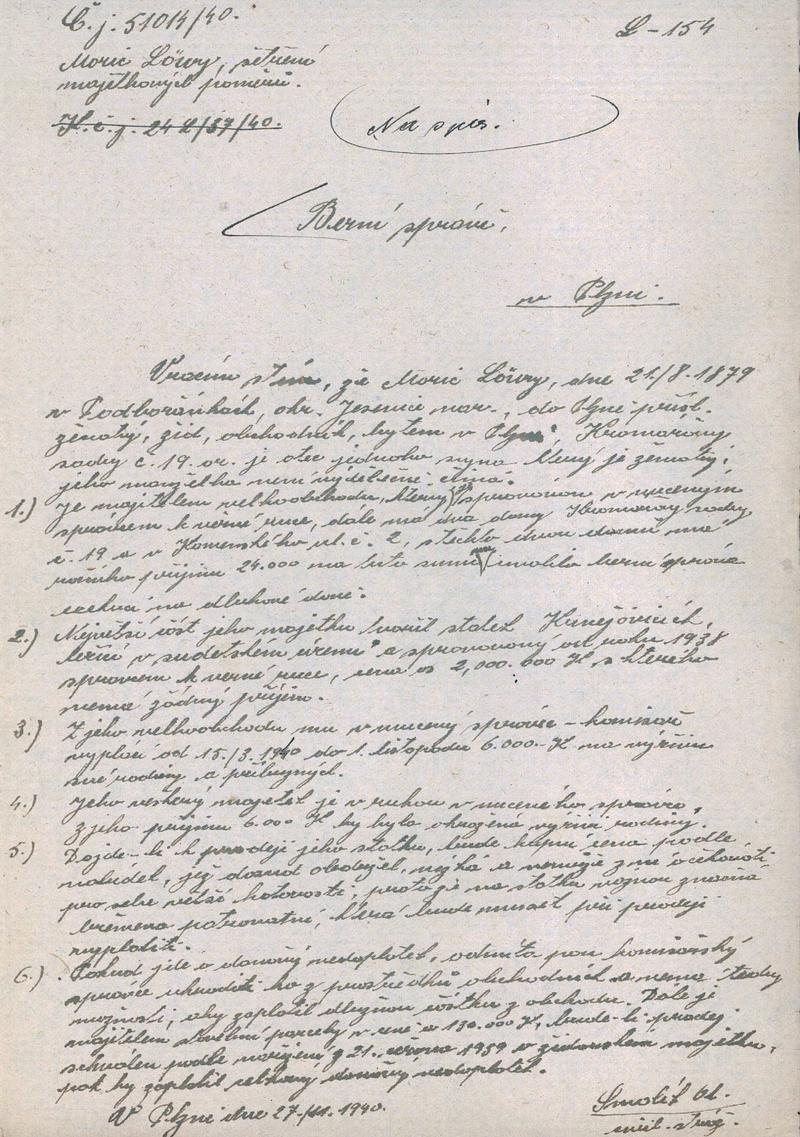 Č. j. 51014/40.
L-154
Moric Löwy, šetření
majetkových poměrů.
K. č. j. 242/37/40.
Na spis.
Berní správě,
v Plzni.
Vracím s tím, že Moric Löwy, dne 21./8. 1879
v Podbořánkách, okr. Jesenice nar., do Plzně přísl.
ženatý, žid, obchodník, bytem v Plzni, Kromařovy
sady č. 19. or. je otec jednoho syna který je ženatý,
jeho manželka není výdělečně
1.) Je majitelem velkoobchodu, který je spravován v nuceným
správcem k věrné ruce, dále má dva domy Kromařovy sady
č. 19 a v Komenského ul. č. 2, z těchto dvou domů má
ročního příjmu 24.000 na tuto sumu mu berní správa
exekuci na dlužné daně.
2.) Největší část jeho majetku tvořil statek
ležící v sudetském území a spravovaný od roku 1938
správcem k věrné ruce, cena as 2,000.000 K, z kterého
nemá žádný příjem.
3.) Z jeho velkoobchodu mu v nucený správce - komisař
vyplácí od 15./3. 1940 do 1. listopadu 6.000.- K na výživu
své rodiny a příbuzných.
4.) Jeho veškerý majetek je v rukou v nuceného správce,
z jeho příjmu 6.000 K by byla ohrožena výživa rodiny.
5.) Dojde-li k prodeji jeho statku, bude kupní cena podle
nabídek, jež dosud obdržel, nízká a nemůže z ní očekávati
pro sebe větší hotovosti, protože na statku váznou značná
břemena patronátní, která bude muset při prodeji
vyplatiti.
6.) Pokud jde o daňový nedoplatek, odmítá pan komisařský
správce uhraditi ho z prostředků obchodních a nemá tedy
možnosti, aby zaplatil dlužnou částku z obchodu. Dále je
majitelem stavební parcely v ceně a 130.000 K, bude-li prodej
schválen podle nařízení z 21. června 1939 o židovském majetku,
pak by zaplatil celkový daňový nedoplatek.
V Plzni dne 27./11. 1940.
Smolík Ot.